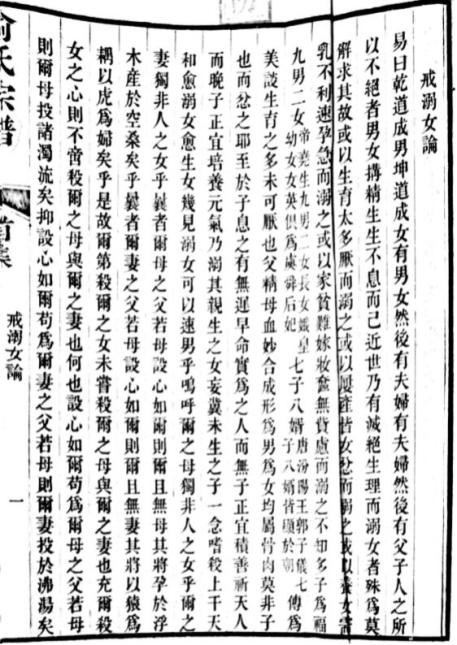 戒溺女論
易曰乾道成男坤道成女有男女然後有夫婦有夫婦然後有父子人之所
以不絕者男女搆精生生不息而已近世乃有滅絕生理而溺女者殊為莫
解求其故或以生育太多厭而溺之或以屢產皆女忿而溺之或以養女需
乳不利速孕急而溺之或以家貧難嫁妝奩無費慮而溺之不知多子為福
九男二女帝堯生九男二女長女娥皇幼女女英俱為虞舜后妃七子八婿唐汾陽王郭子儀七子八婿皆顯於朝傳為
美談生育之多未可厭也父精母血妙合成形為男為女均屬骨肉莫非子
也而忿之耶至於子息之有無遲早命實為之人而無子正宜積善祈天人
而晚子正宜培養元氣乃溺其親生之女妄冀未生之子一念嗜殺上干天
和愈溺女愈生女幾見溺女可以速男乎嗚呼爾之母獨非人之女乎爾之
妻獨非人之女乎曩者爾母之父若母設心如爾則爾且無母其將孕於浮
木產於空桑矣乎曩者爾妻之父若母設心如爾則爾且無妻其將以猿為
耦以虎為婦矣乎是故爾第殺爾之女未嘗殺爾之母與爾之妻也充爾殺
女之心則不啻殺爾之母與爾之妻也何也設心如爾苟為爾母之父若母
則爾母投諸濁流矣抑設心如爾苟為爾妻之父若母則爾妻投於沸湯矣
俞氏宗譜
首集
戒溺女論
一